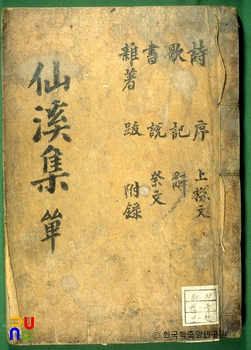 詩 序 上樑文
歌 記 辭
書 說 祭文
雜著 跋 附錄
仙溪集 單
© 한국학중앙연구원